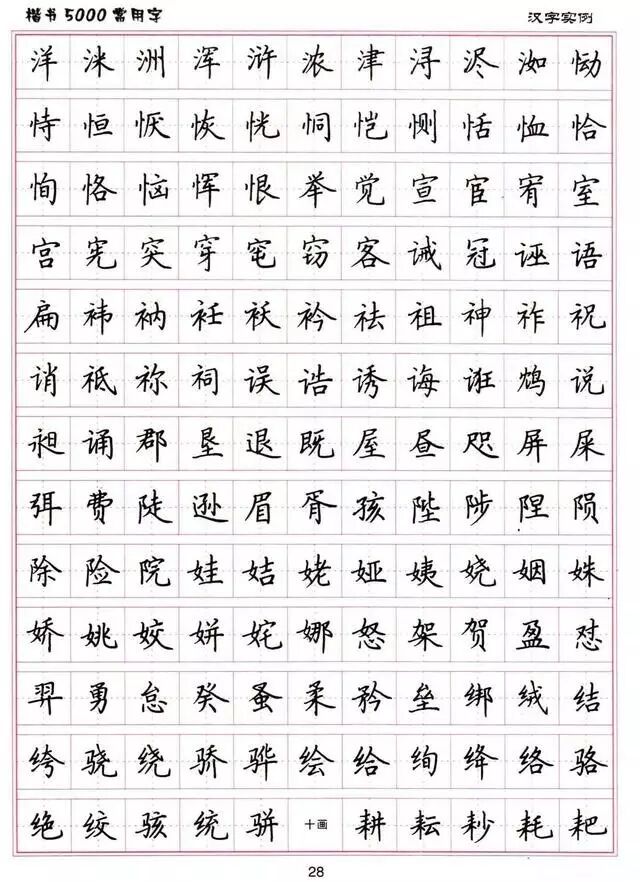 楷书5000常用字 汉字实例
洋 洣 洲 浑 浒 浓 津 浔 浕 洳 恸
恃 恒 恹 恢 恍 恫 恺 恻 恬 恤 恰
恂 恪 恼 恽 恨 举 觉 宣 宦 宥 室
宫 宪 突 穿 窀 窃 客 诫 冠 诬 语
扁 袆 衲 衽 袄 衿 袪 祖 神 祚 祝
诮 祗 祢 祠 误 诰 诱 诲 诳 鸩 说
昶 诵 郡 垦 退 既 屋 昼 咫 屏 屎
弭 费 陡 逊 眉 胥 孩 陛 陟 陧 陨
除 险 院 娃 姞 姥 娅 姨 娆 姻 姝
娇 姚 姣 姘 姹 娜 怒 架 贺 盈 怼
羿 勇 怠 癸 蚤 柔 矜 垒 绑 绒 结
绔 骁 绕 骄 骅 绘 给 绚 绛 络 骆
绝 绞 骇 统 骈 十画 耕 耘 耖 耗 耙
28